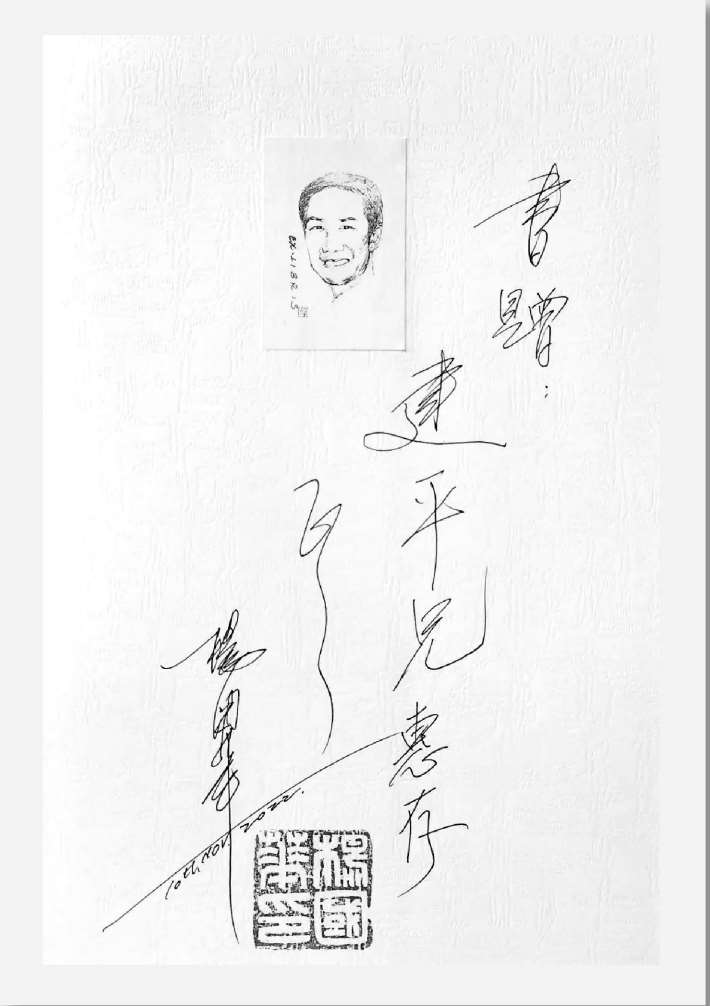 書贈：
建平兄惠存
楊國華
10th Nov 2022.
楊國
華印